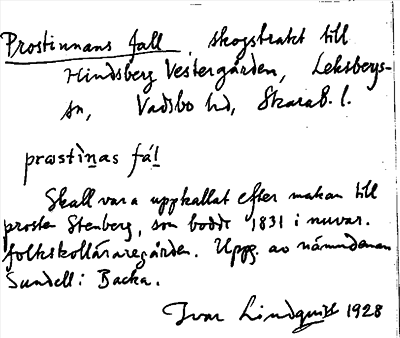 Prostinnans fall, skogstrakt till
Hindsberg Vestergården, Leksbergs-
sn, Vadsbo hd, Skarab. l.
præstìn̠as fál̠
Skall vara uppkallat efter makan till
prosten Stenberg, som bodde 1831 i nuvar.
folkskolläraregården. Uppg. av nämndeman
Sundell i Backa.
Ivar Lindquist 1928